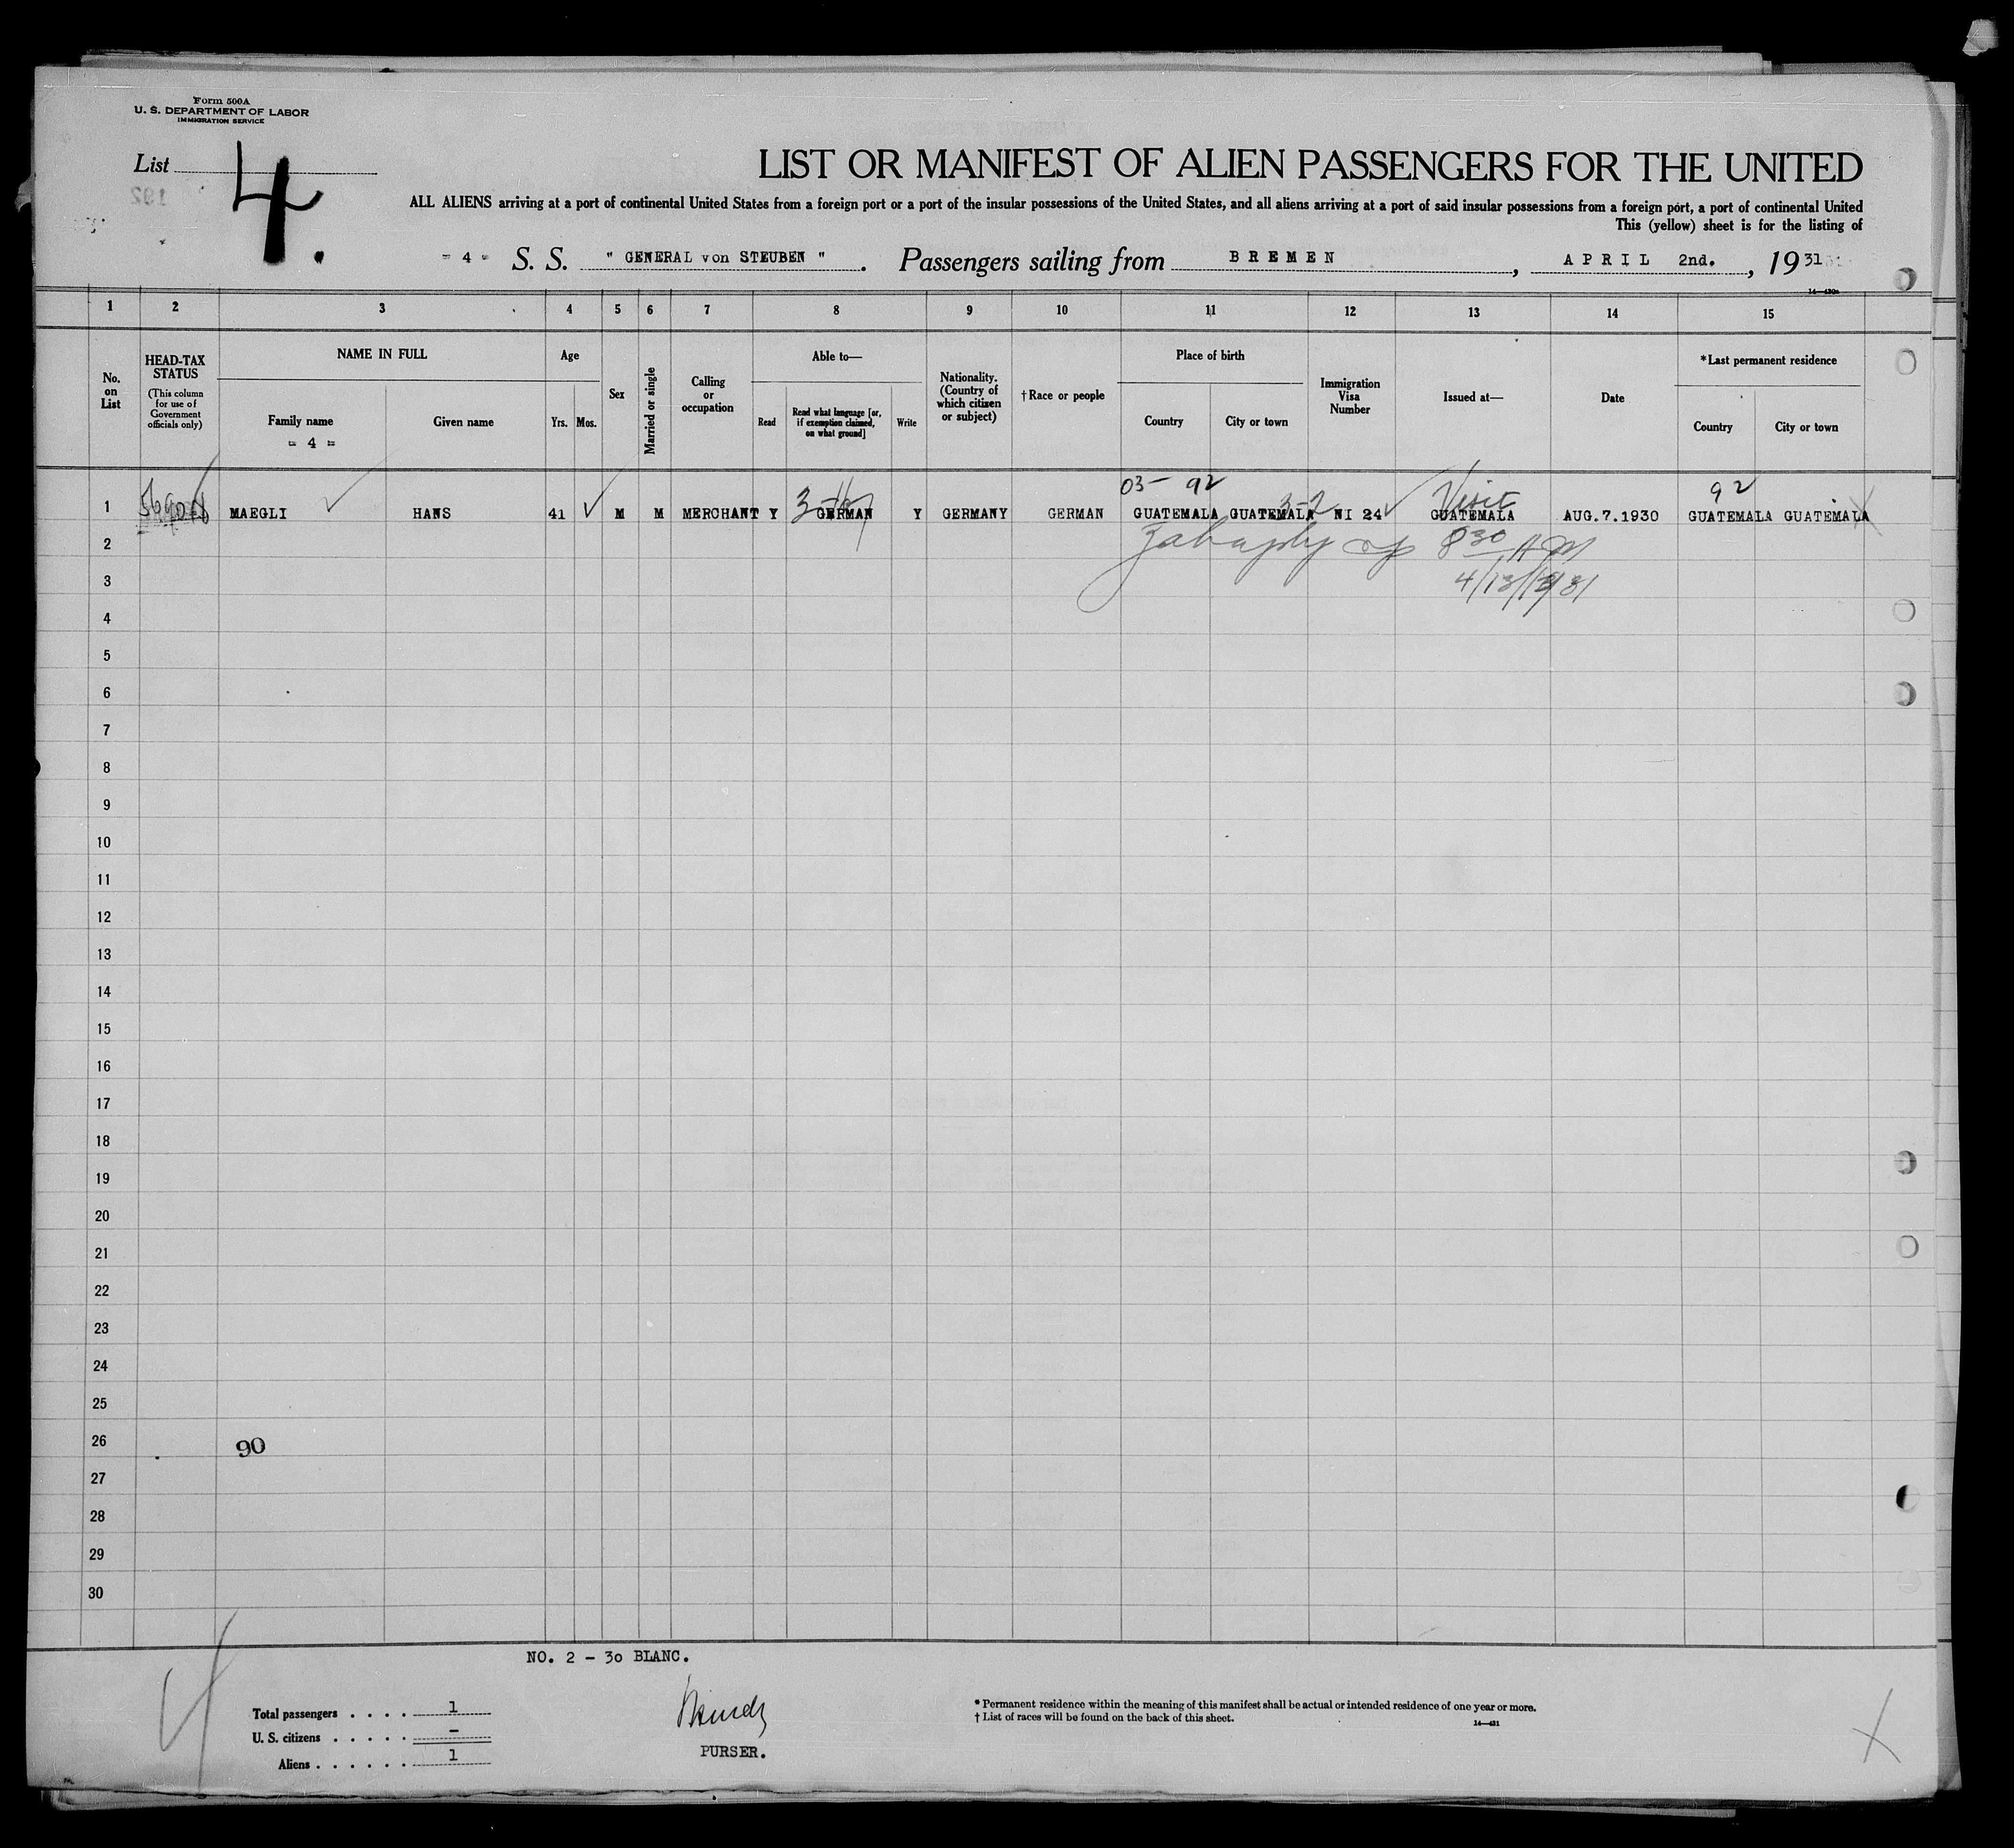 Form 500A
U. S. DEPARTMENT OF LABOR
IMMIGRATION SERVICE
List 4.
LIST OR MANIFEST OF ALIEN PASSENGERS FOR THE UNITED
ALL ALIENS arriving at a port of continental United States from a foreign port or a port of the insular possessions of the United States, and all aliens arriving at a port of said insular possessions from a foreign port, a port of continental United
This (yellow) sheet is for the listing of
- 4 - S. S. " GENERAL von STEUBEN " . Passengers sailing from BREMEN , APRIL 2nd. , 1931
1 2 3 4 5 6 7 8 9 10 11 12 13 14 15
No. on List
HEAD-TAX STATUS
(This column for use of Government officials only)
NAME IN FULL
Family name
- 4 -
Given name
Age
Yrs. Mos.
Sex
Married or single
Calling or occupation
Able to—
Read
Read what language [or, if exemption claimed, on what ground]
Write
Nationality. (Country of which citizen or subject)
† Race or people
Place of birth
Country
City or town
Immigration Visa Number
Issued at—
Date
*Last permanent residence
Country
City or town
03- 92
92
Visit
1 MAEGLI HANS 41 M M MERCHANT Y GERMAN Y GERMANY GERMAN GUATEMALA GUATEMALA NI 24 GUATEMALA AUG.7.1930 GUATEMALA GUATEMALA
2 8 30 AM
3
4
5
6
7
8
9
10
11
12
13
14
15
16
17
18
19
20
21
22
23
24
25
26 90
27
28
29
30
NO. 2 - 30 BLANC.
Total passengers . . . . 1
U. S. citizens . . . . . -
Aliens . . . . . . 1
PURSER.
* Permanent residence within the meaning of this manifest shall be actual or intended residence of one year or more.
† List of races will be found on the back of this sheet.
14—431